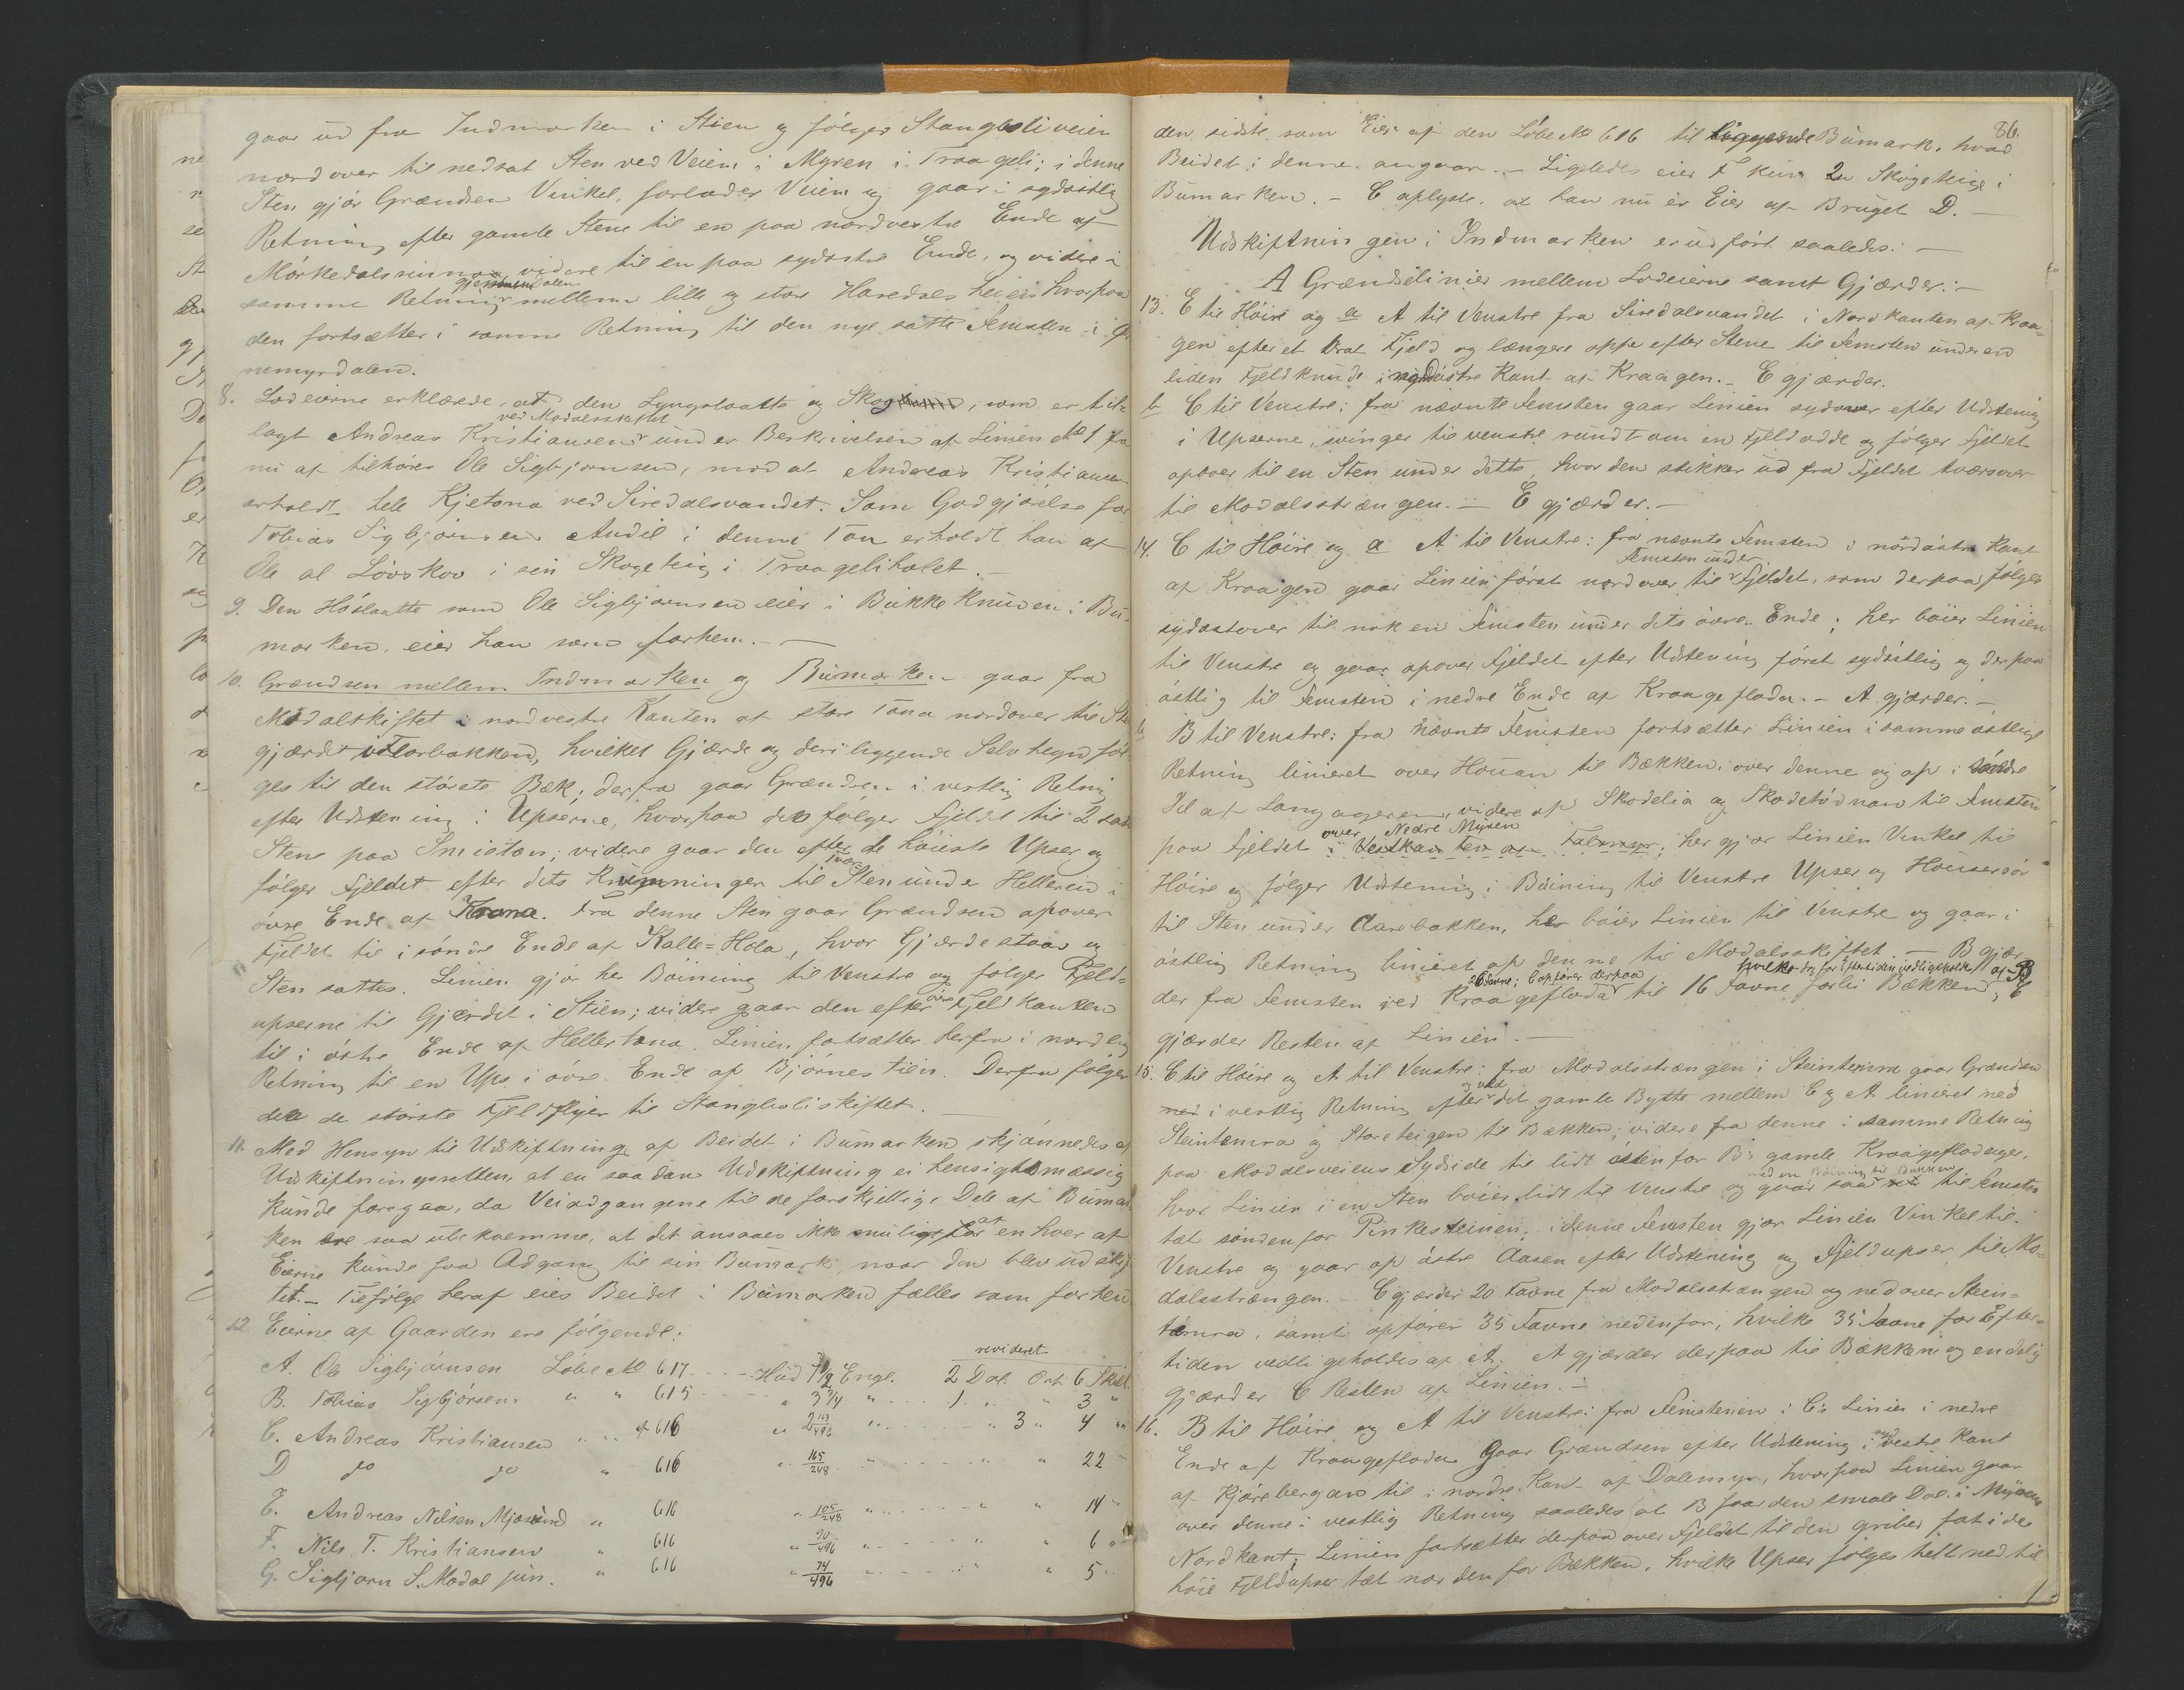 gaar ud fra Indmarken i Stien og følger Stangboliveien
nordover til nedsat Sten ved Veien i Myren i Traageli; i denne
Sten gjør Grændsen Vinkel, forlader Veien og gaar i sydøstlig
Retning efter gamle Stene til en paa nordvestre Ende af
Mørkedalsrinnaa videre til en paa sydøstre Ende, og videre i
samme Retning mellem lille og store Haredalsheien hvorpaa
den fortsætter i samme Retning til den nye satte Femsten i
nemyrdalen.
8. Lodeierne erklærede, at den Lyngslaatte og Skog, som er til-
ved Modalsskaftet
lagt Andreas Kristiansen under Beskrivelsen af Linien № 1 fra
nu af tilhører Ole Sigbjørnsen, mod at Andreas Kristiansen
erholdt hele Kjetona ved Siredalsvandet. Som Godgjørelse for
Tobias Sigbjørnsens Andel i denne Tøn erholdt han af
Ole al Løvskov i sin Skogeteig i Traageliholet.
9. Den Høslaatte som Ole Sigbjørnsen eier i Bukkeknuden i Bu-
marken, eier han som forhen.
10. Grændsen mellem Indmarken og Bumarken gaar fra
Modalskiftet i nordvestre Kanten af store Tona nordover til
gjærdet i Florbakken, hvilket Gjærde og deri liggende Selvhegn føl
ges til den største Bæk; derfra gaar Grændsen i vestlig Retning
efter Udstening i Upserne, hvorpaa den følger Fjeldet til 2 satte
Stene paa Smieton; videre gaar den efter de høieste Upser og
følger Fjeldet efter dets Krumninger til Sten under Helleren i
øvre Ende af Krona. Fra denne Sten gaar Grændsen opover
Fjeldet til i søndre Ende af Kalle=Hola, hvor Gjærde staar og
Sten sattes. Linien gjør her Bøining til Venstre og følger Fjeld-
upserne til Gjærdet i Stien; videre gaar den efter øvre Fjeldkanten
til i østre Ende af Hellertona. Linien fortsætter herfra i nordlig
Retning til en Ups i øvre Ende af Bjørnestien. Derfra følger
den de største Fjeldflyer til Stangboliskiftet.
11. Med Hensyn til Udskiftning af Beidet i Bumarken skjønnedes af
Udskiftningsretten, at en saadan Udskiftning ei hensigtsmæssig
kunde foregaa, da Veiadgangene til de forskjellige Dele af Bumar
ken ere saa ubekvemme, at det ansaaes ikke muligt at en hver af
Eierne kunde faa Adgang til sin Bumark, naar den blev udskif
tet.– Tilfølge heraf eies Beidet i Bumarken fælles som forhen
12 Eierne af Gaarden ere følgende:
revideret
A. Ole Sigbjørnsen Løbe № 617 Hud 7 1/2 Engl. 2 Dal. Ort 6 Skil
B. Tobias Sigbjørnsen " " 615 " 3 3/4 " 1 " " 3 "
C. Andreas Kristiansen " " af 616 " 2 163/496 " " 3 " 4 "
D do do " 616 " 165/248 " " " 22
E. Andreas Nilsen Mjosund " 616 " 105/248 " " " 14 "
F. Nils T. Kristiansen " 616 " 90/496 " " " 6 "
G. Sigbjørn S. Modal jun. " 616 " 74/496 " " " 5 "
86.
den sidste som Eier af den Løbe № 616 til Bumark, hvad
Beidet i denne angaar.– Ligeledes eier F kun 2 Skogeteige i
Bumarken.– C oplyste, at han nu er Eier af Bruget D.–
Udskiftningen i Indmarken er udført saaledes:–
A Grændselinier mellem Lodeierne samt Gjærder:–
13. E til Høire og a A til Venstre fra Siredalsvandet i Nordkanten af Kraa-
gen efter et brat Fjeld og længere oppe efter Stene til Femsten under en
liden Fjeldknude i nordøstre Kant af Kraagen.– E gjærder.
b C til Venstre: fra nævnte Femsten gaar Linien sydover efter Udstening
i Upserne, svinger til venstre rundt om en Fjeldodde og følger Fjeldet
opover til en Sten under dette, hvor den stikker ud fra Fjeldet tværsover
til Modalsstrængen.– E gjærder.–
14. C til Høire og a A til Venstre: fra nævnte Femsten i nordøstre Kant
Femsten under
af Kraagen gaar Linien først nordover til Fjeldet, som derpaa følges
sydostover til nok en Femsten under dets øvre Ende; her bøier Linien
til Venstre og gaar opover Fjeldet efter Udstening først sydøstlig og derpaa
østlig til Femsten i nedre Ende af Kraageflodu.– A gjærder.–
b B til Venstre: fra nævnte Femsten fortsætter Linien i samme østlige
Retning linieret over Houan til Bækken; over denne og op i søndre
Del af Langageren, videre op Skodelia og Skodetødnan til Femsten
over Nedre Mysen
paa Fjeldet i Vestkanten af Falmyr; her gjør Linien Vinkel til
Høire og følger Udstening i Bøining til Venstre Upser og Housersør
til Sten under Aarebakken, her bøier Linien til Venstre og gaar i
østlig Retning linieret op denne til Modalsskiftet.– B gjær
26 Favne; C opfører derpaa hvilke dog for Eftertiden vedligeholdes af B
der fra Femsten ved Kraagefloda til 16 Favne forbi Bækken, C
gjærder Resten af Linien.–
15. C til Høire og A til Venstre: fra Modalsstrængen i Steintemra gaar Grændsen
ned i vestlig Retning efter det gamle Bytte mellem C og A linieret ned
Steintemra og Storeteigen til Bækken; videre fra denne i samme Retning
paa Modalsveiens Sydside til lidt østenfor B's gamle Kraageflodager,
med en Bøining til Bakken
hvor Linien i en Sten bøier lidt til Venstre og gaar saa til Femsten
tæt søndenfor Pinkesteinen; i denne Femsten gjør Linien Vinkel til
Venstre og gaar op østre Aasen efter Udstening og Fjeldupser til Mo-
dalsstrængen.– C gjærder 20 Favne fra Modalsstrængen og nedover Stein-
temra, samt opfører 35 Favne nedenfor, hvilke 35 Favne for Efter-
tiden vedligeholdes af A. A gjærder derpaa til Bækken og endelig
gjærder C Resten af Linien.–
16. B til Høire og A til Venstre: fra Femstenen i C's Linie i nedre
Ende af Kraagefloda Gaar Grændsen efter Udstening i vestre Kant
af Kjørebergan til i nordre Kant af Dalemyr, hvorpaa Linien gaar
over denne i vestlig Retning saaledes at B faar den smale Dal i Myrens
Nordkant; Linien fortsætter derpaa over Fjeldet til den griber fat i de
høie Fjeldupser tæt nordenfor Bækken, hvilke Upser følges helt ned til